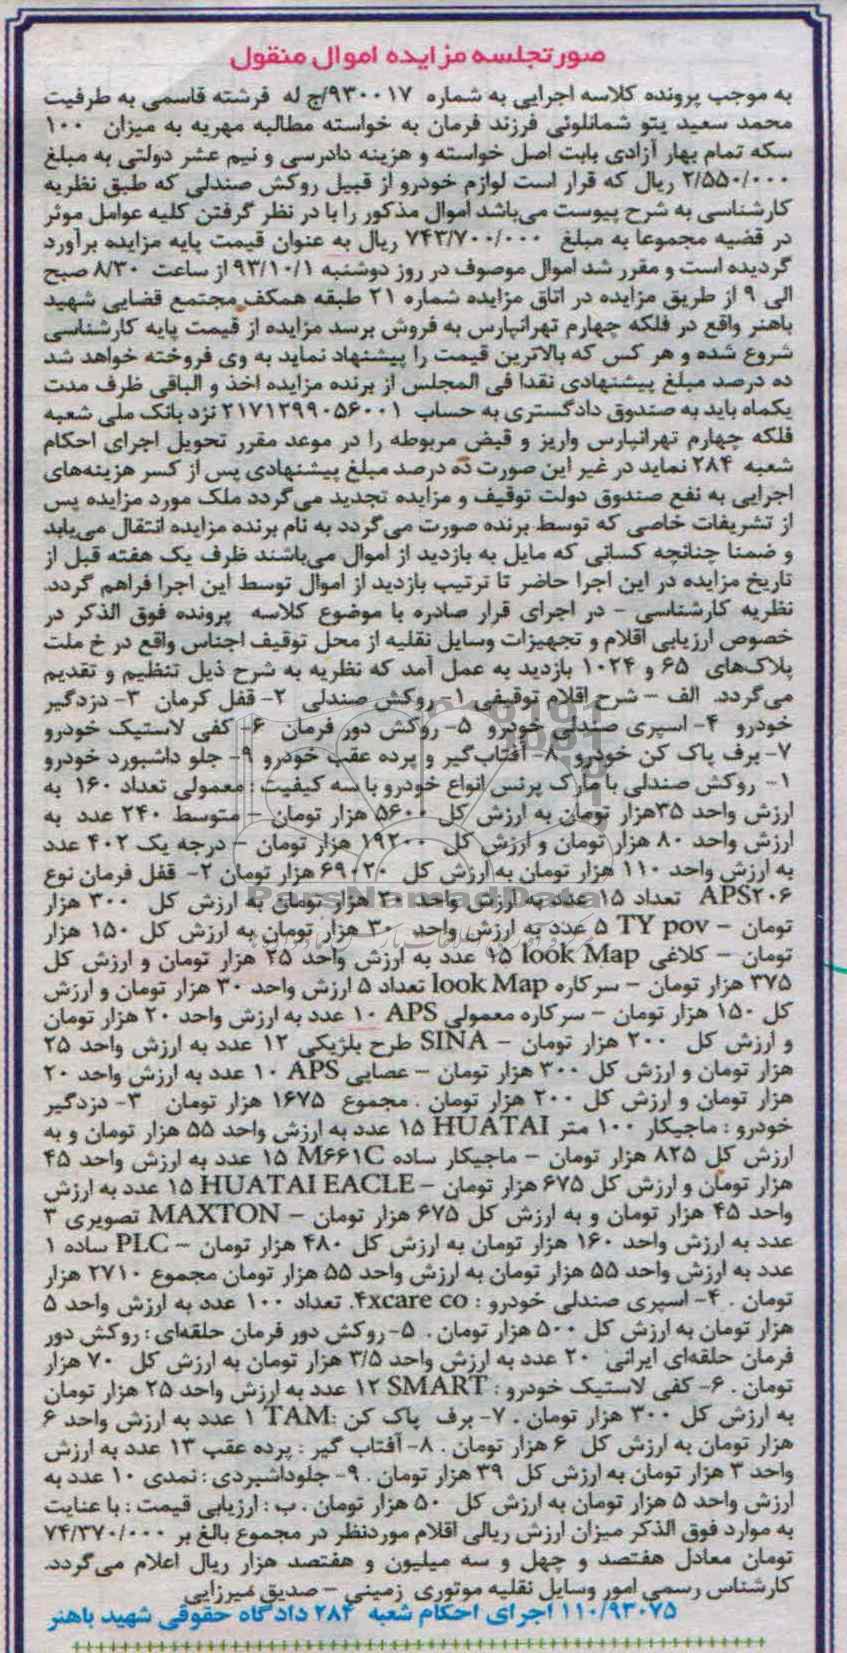 صورتجلسه مزایده اموال منقول
به موجب پرونده کلاسه اجرایی به شماره ۹۳۰۰۱۷/ج له فرشته قاسمی به طرفیت
محمد سعید یتو شمانلوئی فرزند فرمان به خواسته مطالبه مهریه به میزان ۱۰۰
سکه تمام بهار آزادی بابت اصل خواسته و هزینه دادرسی و نیم عشر دولتی به مبلغ
۲/۵۵۰/۰۰۰ ریال که قرار است لوازم خودرو از قبیل روکش صندلی که طبق نظریه
کارشناسی به شرح پیوست می‌باشد اموال مذکور را با در نظر گرفتن کلیه عوامل موثر
در قضیه مجموعا به مبلغ ۷۴۳/۷۰۰/۰۰۰ ریال به عنوان قیمت پایه مزایده برآورد
گردیده است و مقرر شد اموال موصوف در روز دوشنبه ۹۳/۱۰/۱ از ساعت ۸/۳۰ صبح
الی ۹ از طریق مزایده در اتاق مزایده شماره ۲۱ طبقه همکف مجتمع قضایی شهید
باهنر واقع در فلکه چهارم تهرانپارس به فروش برسد مزایده از قیمت پایه کارشناسی
شروع شده و هر کس که بالاترین قیمت را پیشنهاد نماید به وی فروخته خواهد شد
ده درصد مبلغ پیشنهادی نقدا فی المجلس از برنده مزایده اخذ و الباقی ظرف مدت
یکماه باید به صندوق دادگستری به حساب ۲۱۷۱۲۹۹۰۵۶۰۰۱ نزد بانک ملی شعبه
فلکه چهارم تهرانپارس واریز و قبض مربوطه را در موعد مقرر تحویل اجرای احکام
شعبه ۲۸۴ نماید در غیر این صورت ده درصد مبلغ پیشنهادی پس از کسر هزینه‌های
اجرایی به نفع صندوق دولت توقیف و مزایده تجدید می‌گردد ملک مورد مزایده پس
از تشریفات خاصی که توسط برنده صورت می‌گردد به نام برنده مزایده انتقال می‌یابد
و ضمنا چنانچه کسانی که مایل به بازدید از اموال می‌باشند ظرف یک هفته قبل از
تاریخ مزایده در این اجرا حاضر تا ترتیب بازدید از اموال توسط این اجرا فراهم گردد.
نظریه کارشناسی - در اجرای قرار صادره با موضوع کلاسه پرونده فوق الذکر در
خصوص ارزیابی اقلام و تجهیزات وسایل نقلیه از محل توقیف اجناس واقع در خ ملت
پلاک‌های ۶۵ و ۱۰۲۴ بازدید به عمل آمد که نظریه به شرح ذیل تنظیم و تقدیم
می‌گردد. الف - شرح اقلام توقیفی ۱- روکش صندلی ۲- قفل کرمان ۳- دزدگیر
خودرو ۴- اسپری صندلی خودرو ۵- روکش دور فرمان ۶- کفی لاستیک خودرو
۷- برف پاک کن خودرو ۸- آفتاب‌گیر و پرده عقب خودرو ۹- جلو داشبورد خودرو
۱- روکش صندلی با مارک پرنس انواع خودرو با سه کیفیت : معمولی تعداد ۱۶۰ به
ارزش واحد ۳۵هزار تومان به ارزش کل ۵۶۰۰ هزار تومان - متوسط ۲۴۰ عدد به
ارزش واحد ۸۰ هزار تومان و ارزش کل ۱۹۲۰۰ هزار تومان - درجه یک ۴۰۲ عدد
به ارزش واحد ۱۱۰ هزار تومان به ارزش کل ۶۹۰۲۰ هزار تومان ۲- قفل فرمان نوع
APS۲۰۶ تعداد ۱۵ عدد به ارزش واحد ۲۰ هزار تومان به ارزش کل ۳۰۰ هزار
تومان - TY pov ۵ عدد به ارزش واحد ۳۰ هزار تومان به ارزش کل ۱۵۰ هزار
تومان - کلاغی look Map ۱۵ عدد به ارزش واحد ۲۵ هزار تومان و ارزش کل
۳۷۵ هزار تومان - سرکاره look Map تعداد ۵ ارزش واحد ۳۰ هزار تومان و ارزش
کل ۱۵۰ هزار تومان - سرکاره معمولی APS ۱۰ عدد به ارزش واحد ۲۰ هزار تومان
و ارزش کل ۲۰۰ هزار تومان - SINA طرح بلژیکی ۱۲ عدد به ارزش واحد ۲۵
هزار تومان و ارزش کل ۳۰۰ هزار تومان - عصایی APS ۱۰ عدد به ارزش واحد ۲۰
هزار تومان و ارزش کل ۲۰۰ هزار تومان . مجموع ۱۶۷۵ هزار تومان ۳- دزدگیر
خودرو : ماجیکار ۱۰۰ متر HUATAI ۱۵ عدد به ارزش واحد ۵۵ هزار تومان و به
ارزش کل ۸۲۵ هزار تومان - ماجیکار ساده M۶۶۱C ۱۵ عدد به ارزش واحد ۴۵
هزار تومان و ارزش کل ۶۷۵ هزار تومان - HUATAI EACLE ۱۵ عدد به ارزش
واحد ۴۵ هزار تومان و به ارزش کل ۶۷۵ هزار تومان - MAXTON تصویری ۳
عدد به ارزش واحد ۱۶۰ هزار تومان به ارزش کل ۴۸۰ هزار تومان - PLC ساده ۱
عدد به ارزش واحد ۵۵ هزار تومان به ارزش واحد ۵۵ هزار تومان مجموع ۲۷۱۰ هزار
تومان . ۴- اسپری صندلی خودرو : ۴xcare co. تعداد ۱۰۰ عدد به ارزش واحد ۵
هزار تومان به ارزش کل ۵۰۰ هزار تومان . ۵- روکش دور فرمان حلقه‌ای : روکش دور
فرمان حلقه‌ای ایرانی ۲۰ عدد به ارزش واحد ۳/۵ هزار تومان به ارزش کل ۷۰ هزار
تومان . ۶- کفی لاستیک خودرو : SMART ۱۲ عدد به ارزش واحد ۲۵ هزار تومان
به ارزش کل ۳۰۰ هزار تومان . ۷- برف پاک کن :TAM ۱ عدد به ارزش واحد ۶
هزار تومان به ارزش کل ۶ هزار تومان . ۸- آفتاب گیر : پرده عقب ۱۳ عدد به ارزش
واحد ۳ هزار تومان به ارزش کل ۳۹ هزار تومان . ۹- جلوداشبردی : نمدی ۱۰ عدد به
ارزش واحد ۵ هزار تومان به ارزش کل ۵۰ هزار تومان . ب : ارزیابی قیمت : با عنایت
به موارد فوق الذکر میزان ارزش ریالی اقلام موردنظر در مجموع بالغ بر ۷۴/۳۷۰/۰۰۰
تومان معادل هفتصد و چهل و سه میلیون و هفتصد هزار ریال اعلام می‌گردد.
کارشناس رسمی امور وسایل نقلیه موتوری زمینی - صدیق میرزایی
۱۱۰/۹۳۰۷۵ اجرای احکام شعبه ۲۸۴ دادگاه حقوقی شهید باهنر
ParsNamadData